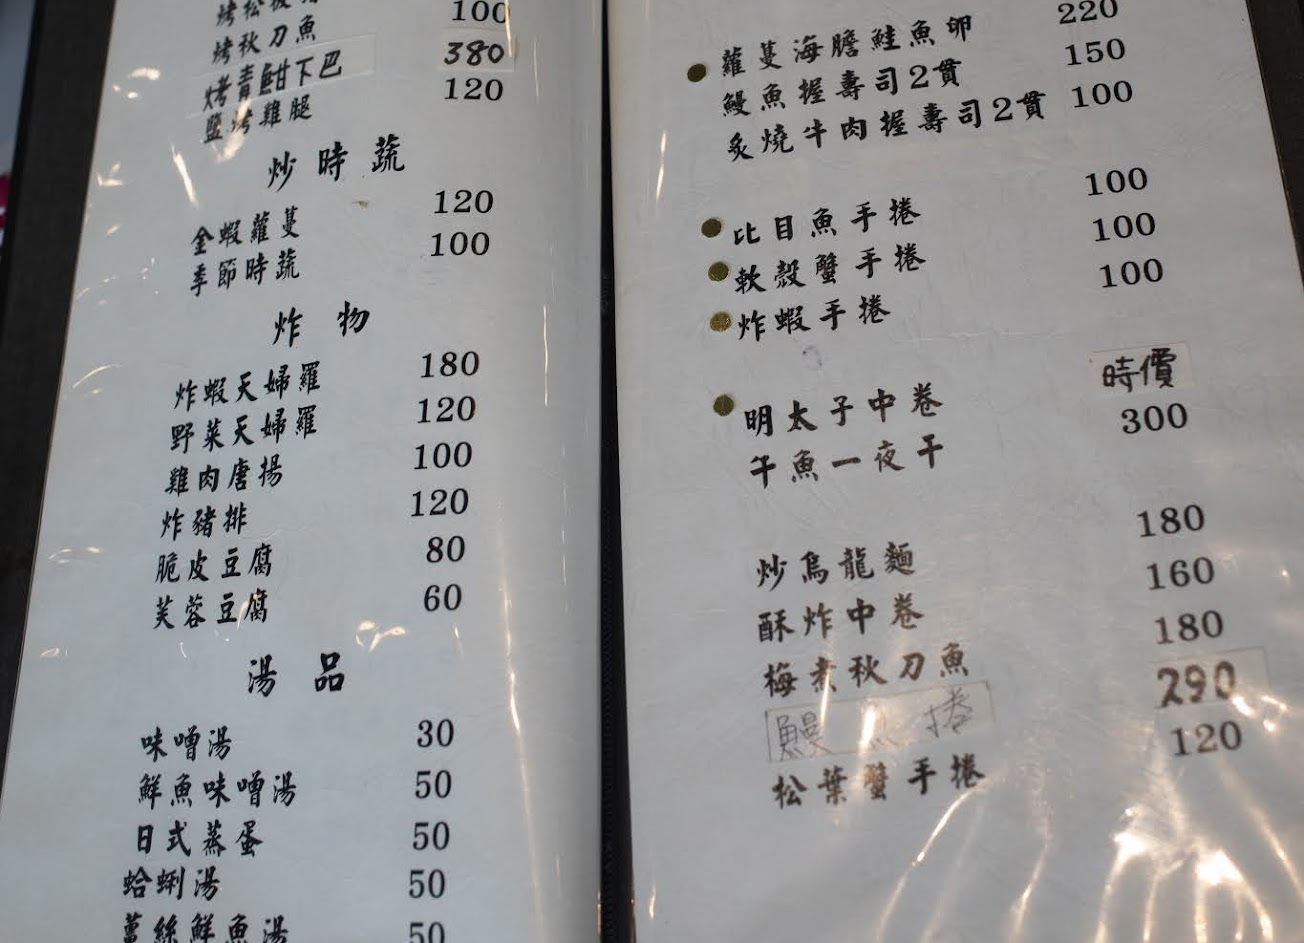 烤松板
烤秋刀魚 100
烤青魽下巴 380
鹽烤雞腿 120
炒時蔬
金蝦蘿蔓 120
季節時蔬 100
炸物
炸蝦天婦羅 180
野菜天婦羅 120
雞肉唐揚 100
炸豬排 120
脆皮豆腐 80
芙蓉豆腐 60
湯品
味噌湯 30
鮮魚味噌湯 50
日式蒸蛋 50
蛤蜊湯 50
薑絲鮮魚湯 50
蘿蔓海膽鮭魚卵 220
鰻魚握壽司2貫 150
炙燒牛肉握壽司2貫 100
比目魚手捲 100
軟殼蟹手捲 100
炸蝦手捲 100
明太子中卷 時價
午魚一夜干 300
炒烏龍麵 180
酥炸中卷 160
梅煮秋刀魚 180
鰻魚捲 290
松葉蟹手捲 120